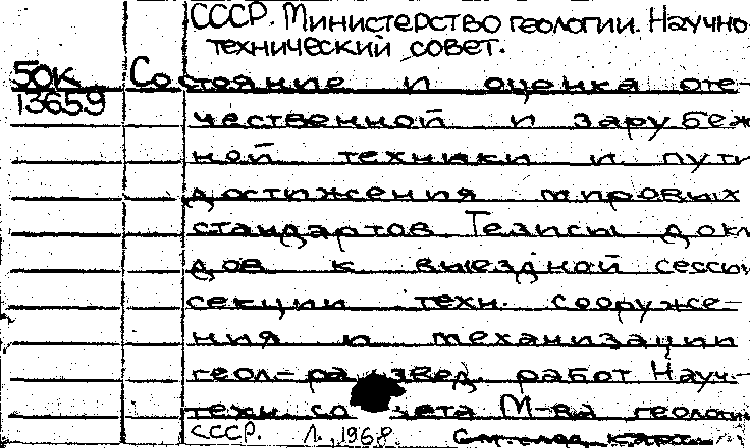 СССР. Министерство геологии. Научно
технический совет.
50к Состояние и оценка оте-
13659 чественной и зарубеж
ной техники и пути
достижения мировых
стандартов. Тезисы докл
дов к выездной сессии
секции техн. сооруже-
ния и механизации
геол-развед. работ Науч.-
техн. со вета М-ва геологи
СССР. Л., 1968.